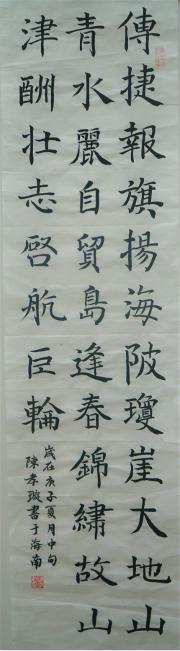 傳捷報旗揚海陂瓊崖大地山
青水麗自貿島逢春錦繡故山
津酬壯志啓航巨輪
歲在庚子夏月中旬
陳孝璇書于海南